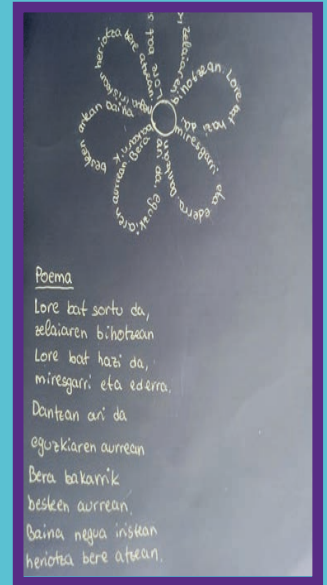 zelaiaren bihotzean. Lore bat hazi da,
miresgarri eta ederra.
Dantzan ari da eguzkiaren aurrean
Bera bakarrik
besteen aurrean
Baina negua iristean
heriotza bere atzean.
Poema
Lore bat sortu da,
zelaiaren bihotzean
Lore bat hazi da,
miresgarri eta ederra.
Dantzan ari da
eguzkiaren aurrean
Bera bakarrik
besteen aurrean.
Baina negua iristean
heriotza bere atzean.